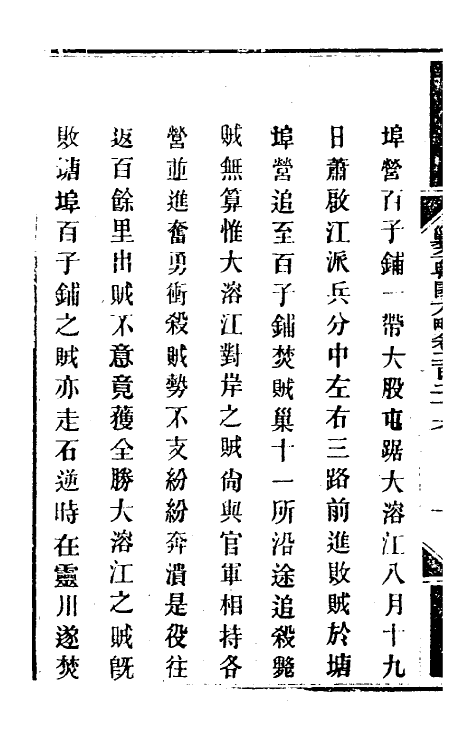 埠營百子鋪一帶大股屯踞大溶江八月十九
日蕭啟江派兵分中左右三路前進敗賊於塘
埠營追至百子鋪焚賊巢十一所沿途追殺斃
賊無算惟大溶江對岸之賊尙與官軍相持各
營並進奮勇衝殺賊勢不支紛紛奔潰是役往
返百餘里出賊不意竟獲全勝大溶江之賊旣
敗塘埠百子鋪之賊亦走石逆時在靈川遂焚